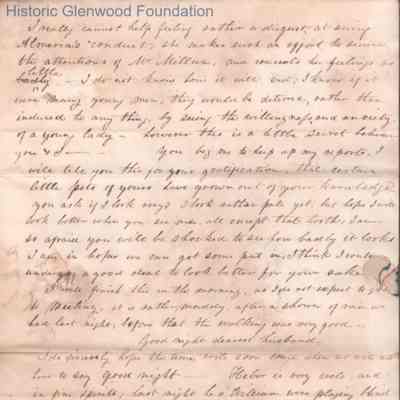 Historic Glenwood Foundation
I really cannot help feeling rather a disgust, at seeing
Almaria's conduct, she makes such an effort to secure
the attentions of Mr and conceals her feelings so
little
badly. - I do not know how it will end, I know if it
were many young men, they would be deterred, rather than
induced to any thing, by seeing the willingness and anxiety
of a young lady - however this is a little secret between
you & I - You beg me to keep up my reports, I
will tell you this for your gratification, that certain
little pets of yours have grown out of your knowledge
you ask if I look I look rather pale yet, but hope I will
look better when you see me, all except that tooth, I am
so afraid you will be shocked to see how badly it looks
I am in hopes we can get some put in, I think I would
undergo a good deal to look better for your sake
I will finish this in the morning, as I do not expect to go
to meeting, it is rather muddy, after a shower of rain we
had last night, before that the walking was very good -
Good night dearest husband.
I do sincerely hope the time will soon come when we will not
have to say good night - is very well and
in fine spirits, last night he & were playing blind